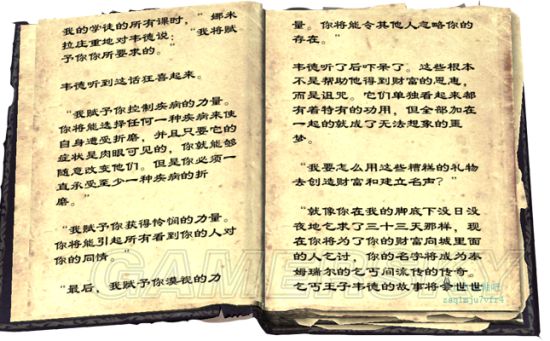 我的学徒的所有课时，" 娜米
拉庄重地对韦德说： "我将赋
予你你所要求的。"
韦德听到这话狂喜起来。
"我赋予你控制疾病的力量。
你将能选择任何一种疾病来使
自身遭受折磨，并且只要它的
症状是肉眼可见的，你就能够
随意改变他们。但是你必须一
直承受至少一种疾病的折
磨。"
"我赋予你获得怜悯的力量。
你将能引起所有看到你的人对
你的同情。"
"最后，我赋予你漠视的力
量。你将能令其他人忽略你的
存在。"
韦德听了后吓呆了。这些根本
不是帮助他得到财富的恩惠，
而是诅咒。它们单独看起来都
有着特有的功用，但全部加在
一起的就成了无法想象的噩
梦。
"我要怎么用这些糟糕的礼物
去创造财富和建立名声？"
"就像你在我的脚底下没日没
夜地乞求了三十三天那样，现
在你将为了你的财富向城里面
的人乞讨，你的名字将成为泰
姆瑞尔的乞丐间流传的传奇。
乞丐王子韦德的故事将令世世
GAMERSKY
zaq1mju7vfr4